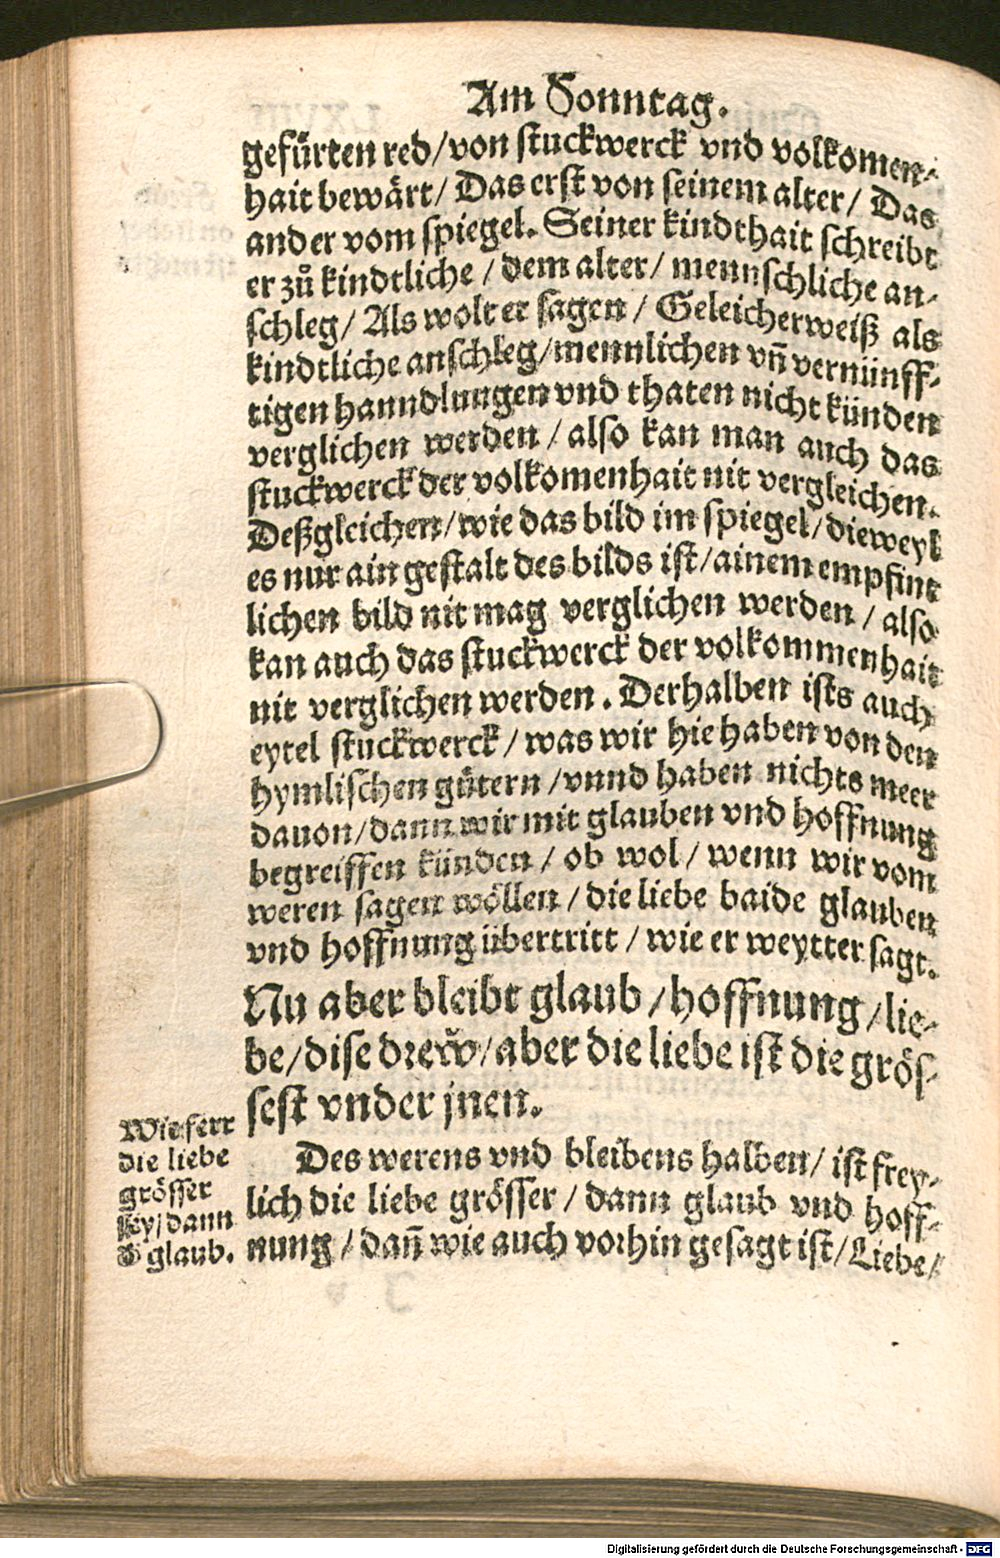 Am Sonntag.
gefürten red/von stuckwerck vnd volkomen-
hait bewärt/ Das erst von seinem alter/ Das
ander vom spiegel. Seiner kindthait schreibt
er zů kindtliche / dem alter/ mennschliche an-
schleg/ Als wolt er sagen / Geleicherweiß als
kindtliche anschleg/mennlichen vñ vernünff-
tigen hanndlungen vnd thaten nicht künden
verglichen werden / also kan man auch das
stuckwerck der volkomenhait nit vergleichen.
Deßgleichen/wie das bild im spiegel/dieweyl
es nur ain gestalt des bilds ist/ainem empfint
lichen bild nit mag verglichen werden / also
kan auch das stuckwerck der volkommenhait
nit verglichen werden . Derhalben ists auch
eytel stuckwerck / was wir hie haben von den
hymlischen gütern /vnnd haben nichts meer
dauon/dann wir mit glauben vnd hoffnung
begreiffen künden / ob wol/ wenn wir vom
weren sagen wöllen / die liebe baide glauben
vnd hoffnung übertritt / wie er weytter sagt.
Nu aber bleibt glaub /hoffnung /lie-
be/dise drew̌/aber die liebe ist die grös-
sest vnder jnen.
Wie ferr
die liebe
grösser
sey/dann
d' glaub.
Des werens vnd bleibens halben/ ist frey-
lich die liebe grösser / dann glaub vnd hoff-
nung / dañ wie auch vorhin gesagt ist/Liebe/
Digitalisierung gefördert durch die Deutsche Forschungsgemeinschaft - DFG